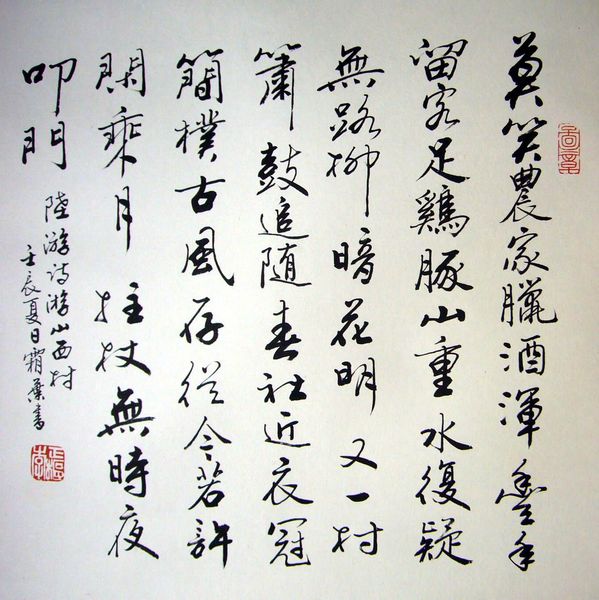 莫笑農家臘酒渾豐年
留客足鷄豚山重水復疑
無路柳暗花明又一村
簫鼓追随春社近衣冠
簡樸古風存從今若許
閑乘月拄杖無時夜
叩門
陸游詩游山西村
壬辰夏日霜葉書